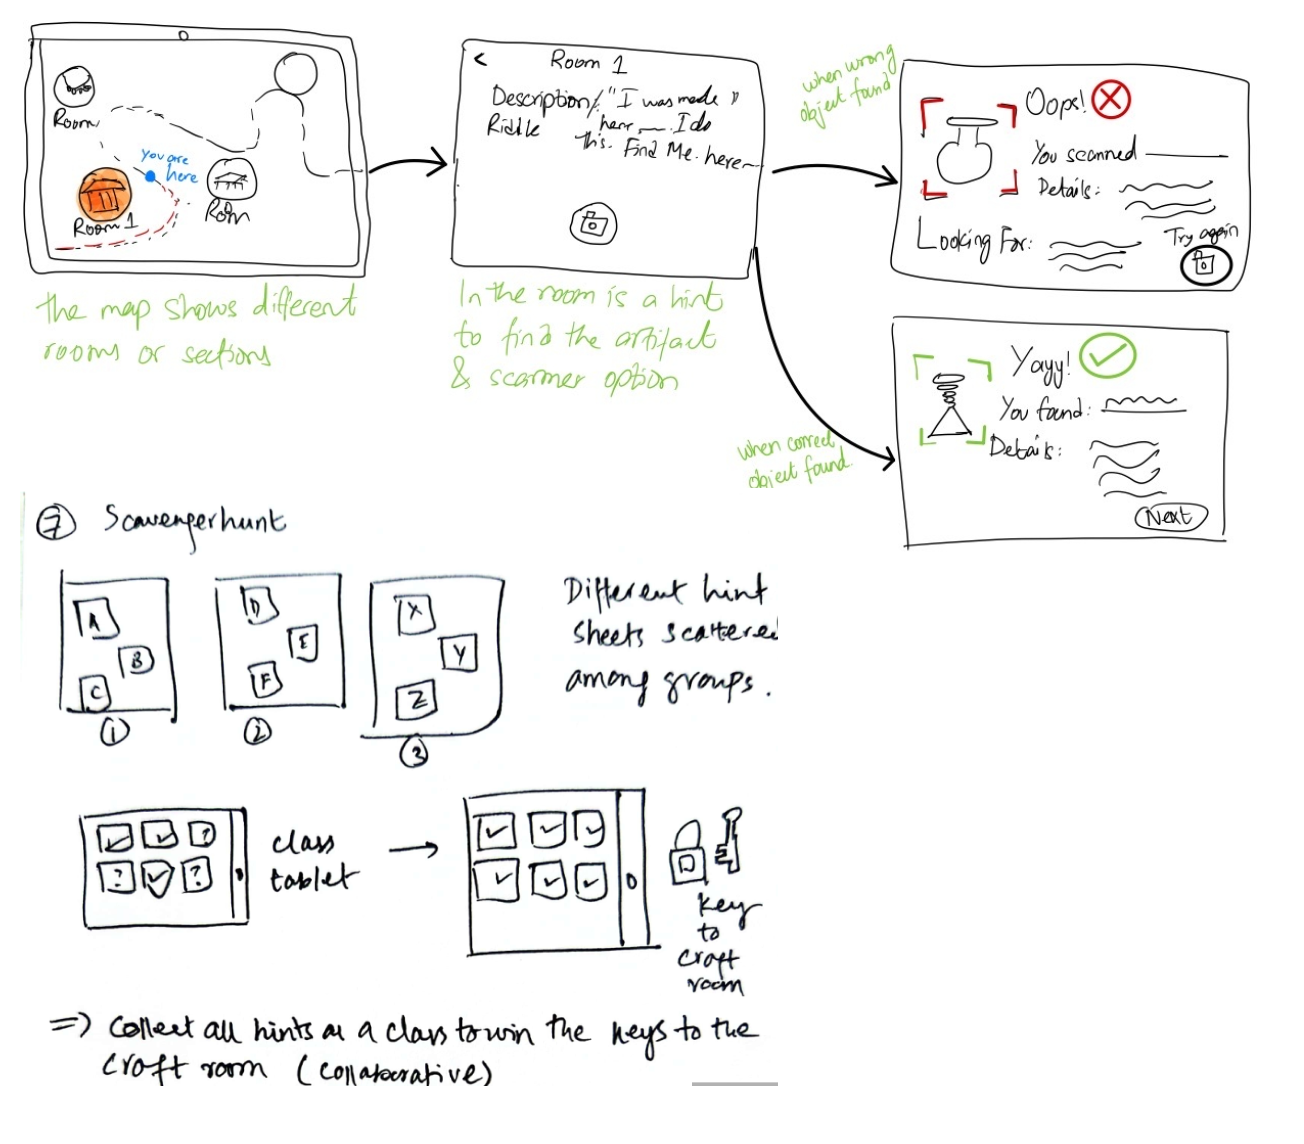 Room
you are
here
Room 1
Room
the map shows different
rooms or sections
<
Room 1
Description/ "I was made"
Riddle here __ I do
this. Find Me. here
In the room is a hint
to find the artifact
& scanner option
when wrong
object found
Oops!
You scanned
Details:
Looking For:
Try again
when correct
object found
Yayy!
You found:
Details:
Next
7 Scavengerhunt
A
B
C
1
D
E
F
2
X
Y
Z
3
Different hint
sheets scattered
among groups.
?
? ?
class
tablet
key
to
craft
room
=> Collect all hints as a class to win the keys to the
craft room (collaborative)